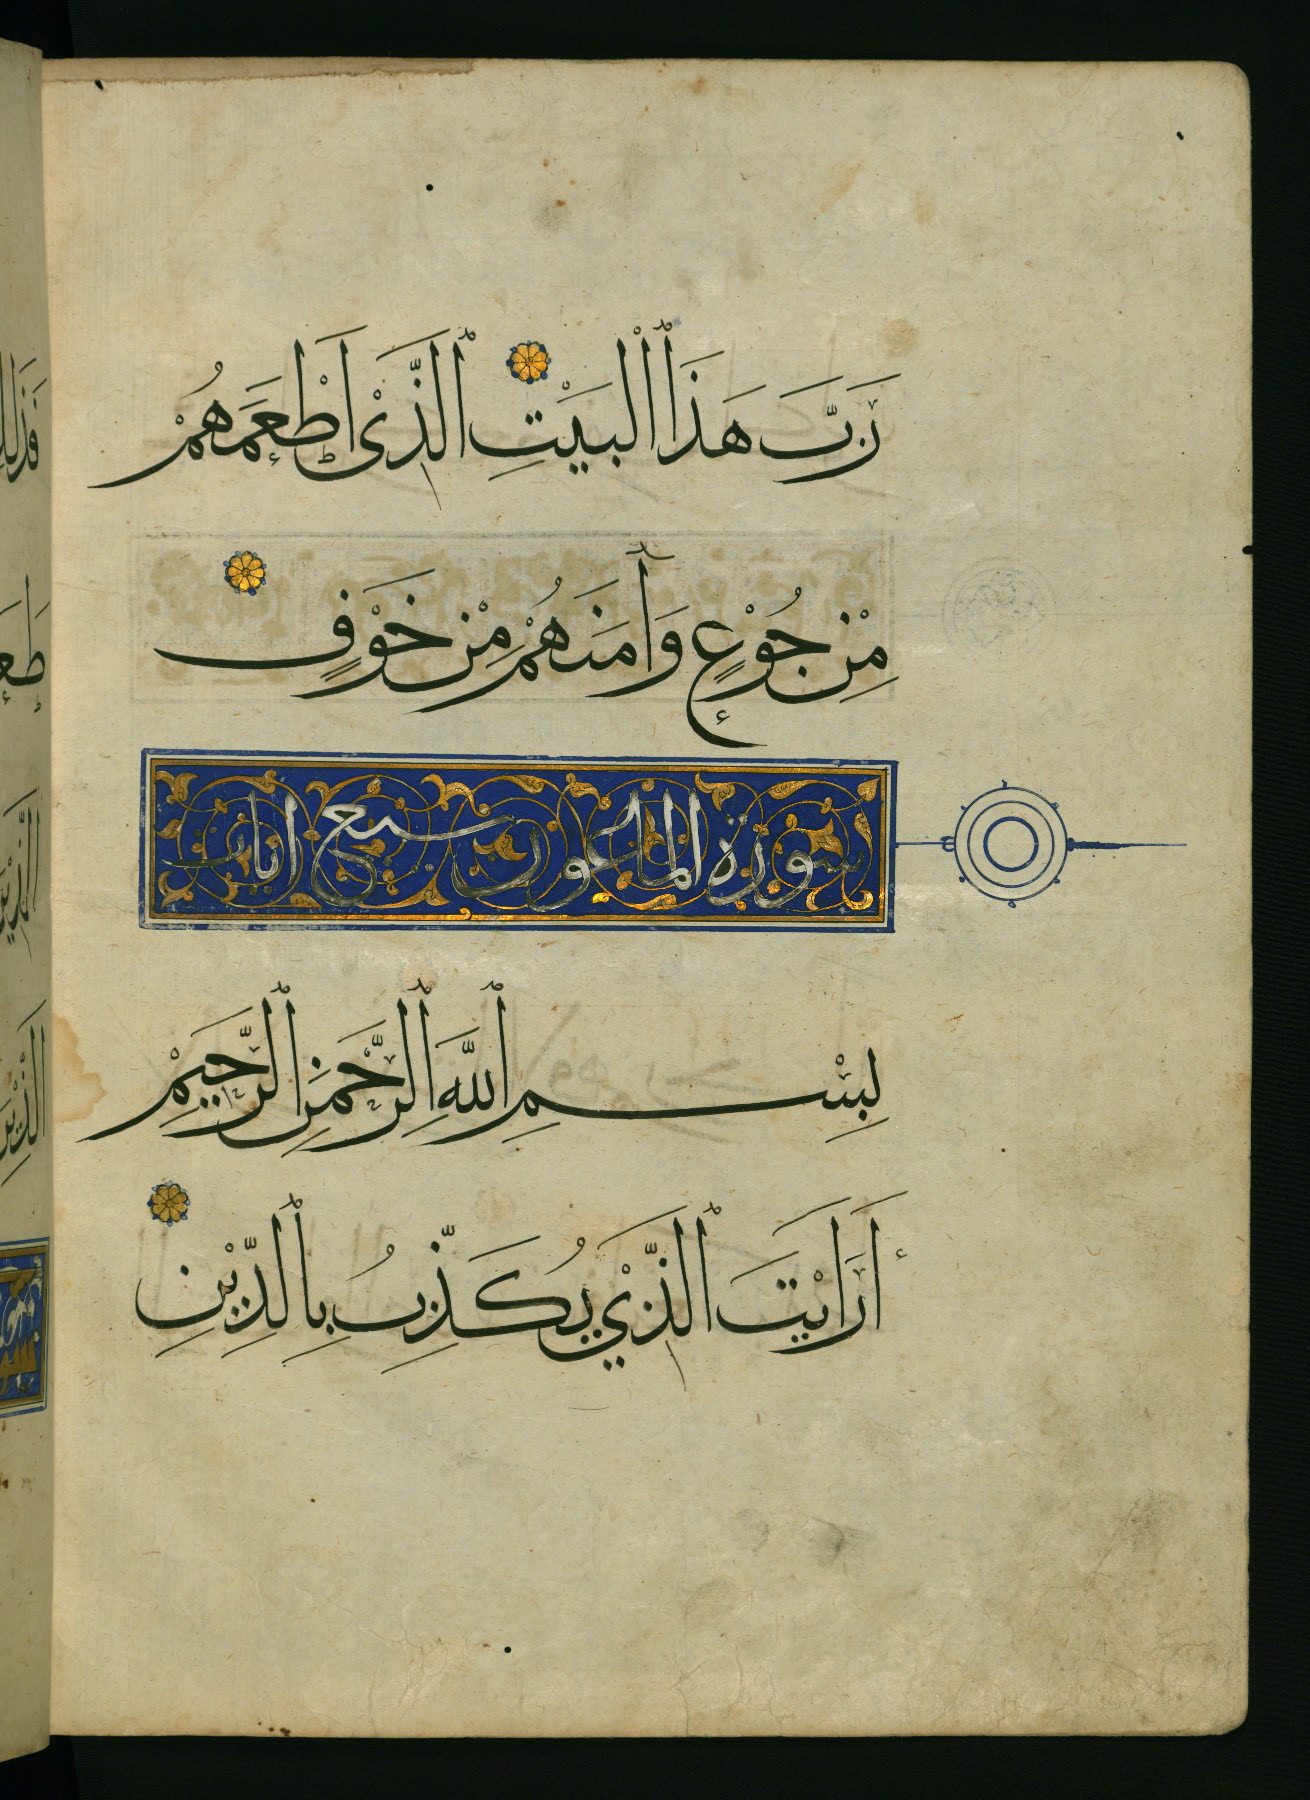 رَبَّ هَذَا ٱلْبَيْتِ ٱلَّذِىْ اَطْعَمَهُمْ
مِنْ جُوْعٍ وَآمَنَهُمْ مِنْ خَوْفٍ
سورة الماعون سبع ايات
بِسْمِ ٱللَّهِ ٱلرَّحْمَنِ ٱلرَّحِيْمِ
أَرَاَيْتَ ٱلَّذِيْ يُكَذِّبُ بِٱلدِّيْنِ